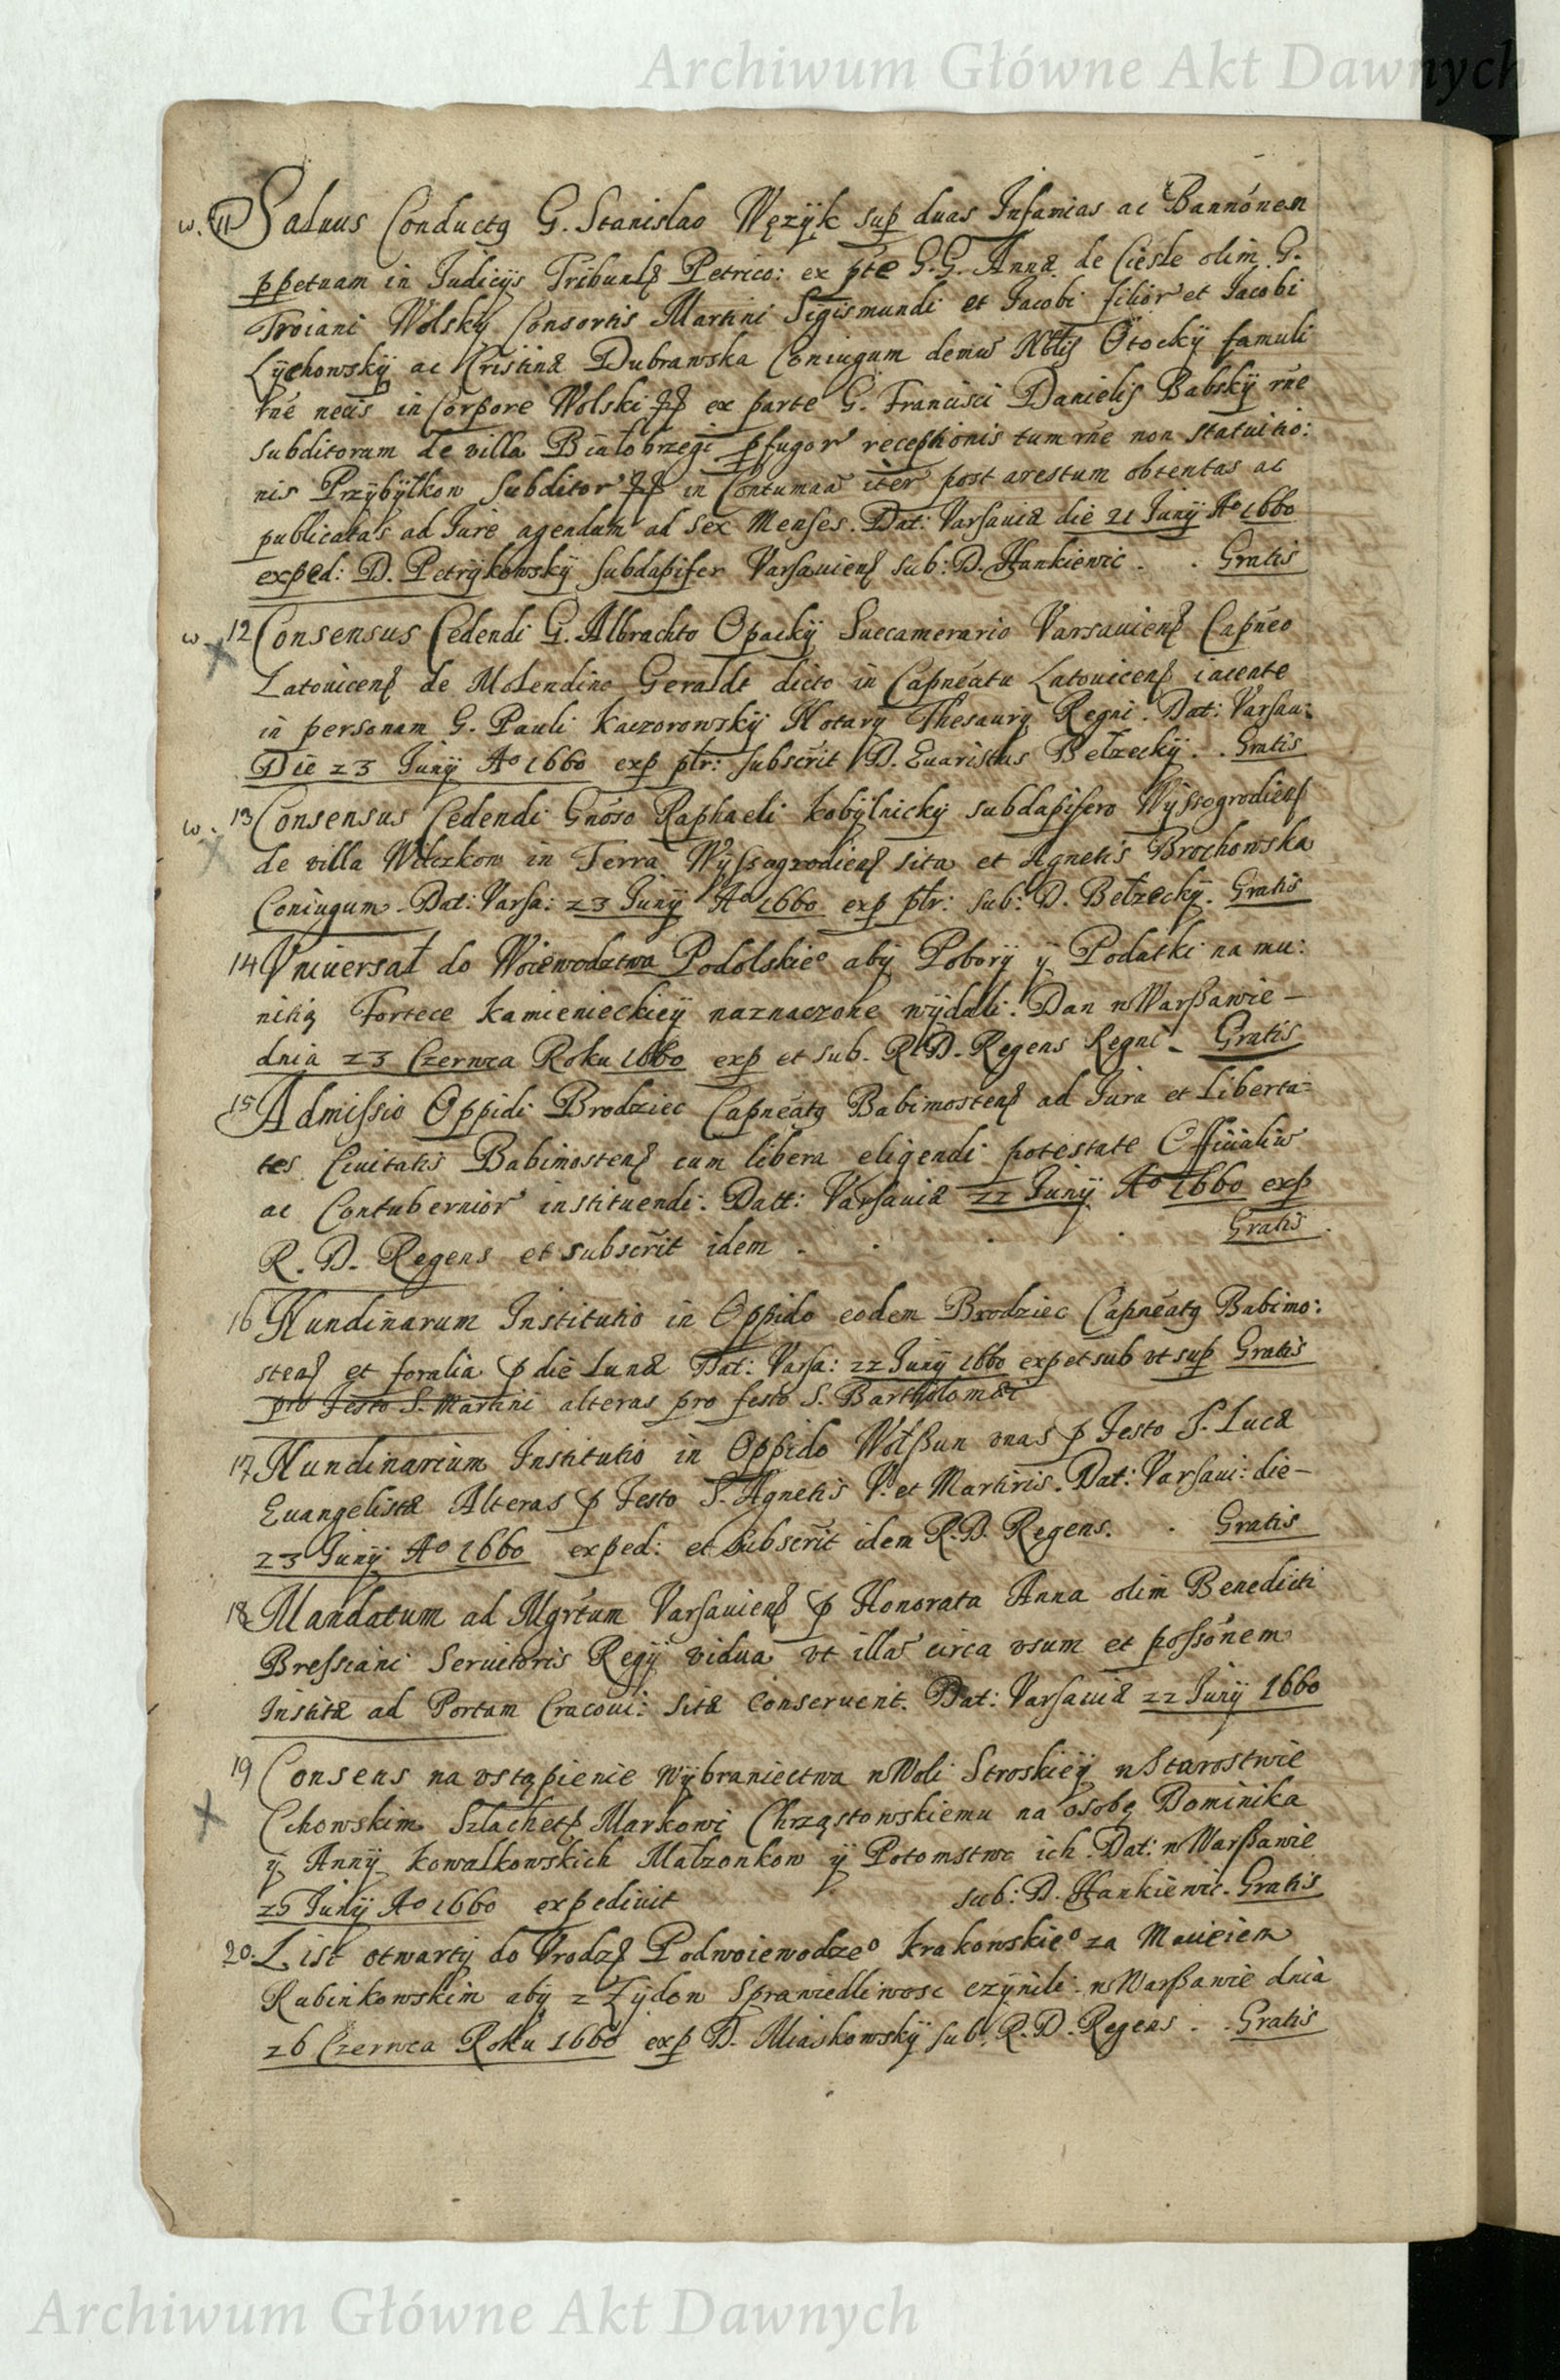 Archiwum Główne Akt Dawnych
w. 11 Saluus Conductq G. Stanislao Wężÿk sup duas Infamias ac Bannōnem
ppetuam in Iudicijs Tribunlʒ Petrico: ex pte G.G. Annæ de Ciesle olim G.
Troiani Wolskÿ Consortis Martini Sigismundi et Iacobi filior et Iacobi
Lÿchowskÿ ac Cristinæ Dubrawska Coniugum demū Nbłis Otockÿ famuli
rne necis in Corpore Wolski ex parte G. Francisci Danielis Babskÿ rne
subditorum de villa Białobrzegi pfugor receptionis tum rne non statuitio:
nis Przÿbÿłkow Subditor in Contumaā iter post arestum obtentas ac
publicatas ad Iure agendum ad sex Menses. Dat: Varsauiæ die 21 Iunÿ Aº 1660
exped: D. Petrÿkowskÿ Subdapifer Varsauienʒ sub: D. Hankiewic . . Gratis
w. 12 Consensus Cedendi G. Albrachto Opackÿ Succamerario Varsauienʒ Capneo
Latouicenʒ de Molendino Geraldt dicto in Capneatu Latouicenʒ iacente
in personam G. Pauli Kaczorowskÿ Notarÿ Thesaurÿ Regni. Dat: Varsau:
Die 23 Iunÿ Aº 1660 exp ptr: subscrit D. Euaristus Bełzeckÿ . . Gratis
w. 13 Consensus Cedendi Gnoso Raphaeli Kobÿlnickÿ subdapifero Wÿssogrodienʒ
de villa Wilczkow in Terra Wÿssogrodienʒ sita et Agnetis Brochowska
Coniugum. Dat: Varsa: 23 Iunÿ Aº 1660 exp ptr: sub: D. Bełzeckÿ. Gratis
14 Vniuersał do Woiewodztwa Podolskieº abÿ Poborÿ ÿ Podatki na mu:
nitią Fortece Kamienieckieÿ naznaczone wÿdali. Dan w Warßawie -
dnia 23 Czerwca Roku 1660 exp et sub. R.D. Regens Regni - Gratis
15 Admissio Oppidi Brodziec Capneatq Babimostenʒ ad Iura et Liberta=
tes Ciuitatis Babimostenʒ cum libera eligendi potestate Officialiū
ac Contubernior instituendi. Datt: Varsauiæ 22 Iunÿ Aº 1660 exp
R. D. Regens et subscrit idem . . . . Gratis .
16 Nundinarum Institutio in Oppido eodem Brodziec Capneatq Babimo:
stenʒ et foralia p die Lunæ Dat: Varsa: 22 Iunÿ 1660 exp et sub vt sup Gratis
pro Festo S. Martini alteras pro festo S. Bartholomæi
17 Nundinarium Institutio in Oppido Wołßun vnas p Festo S. Lucæ
Euangelistæ Alteras p Festo S. Agnetis V. et Martiris. Dat: Varsaui: die -
23 Iunÿ Aº 1660 exped: et subscrit idem R.D. Regens. . Gratis
18 Mandatum ad Mgrtum Varsauienʒ p Honorata Anna olim Benedicti
Bressiani Seruitoris Regÿ vidua vt illā circa vsum et possōnem
Institæ ad Portam Cracoui: Sitæ Conseruent. Dat: Varsauiæ 22 Iunÿ 1660
19 Consens na vstąpienie wÿbraniectwa w Woli Stroskieÿ w Starostwie
Cchowskim Szlachetʒ Markowi Chrząstowskiemu na osobę Dominika
ÿ Annÿ Kowalkowskich Małzonkow ÿ Potomstwo ich. Dat: w Warßawie
25 Iunÿ Aº 1660 expediuit sub: D. Hankiewic. Gratis
20. List otwartÿ do Vrodzʒ Podwoiewodzeº Krakowskieº za Macieiem
Rubinkowskim abÿ z Zÿdow Sprawiedliwosc czÿnili. w Warßawie dnia
26 Czerwca Roku 1660 exp D. Miaskowskÿ sub. R.D. Regens . . Gratis
Archiwum Główne Akt Dawnych